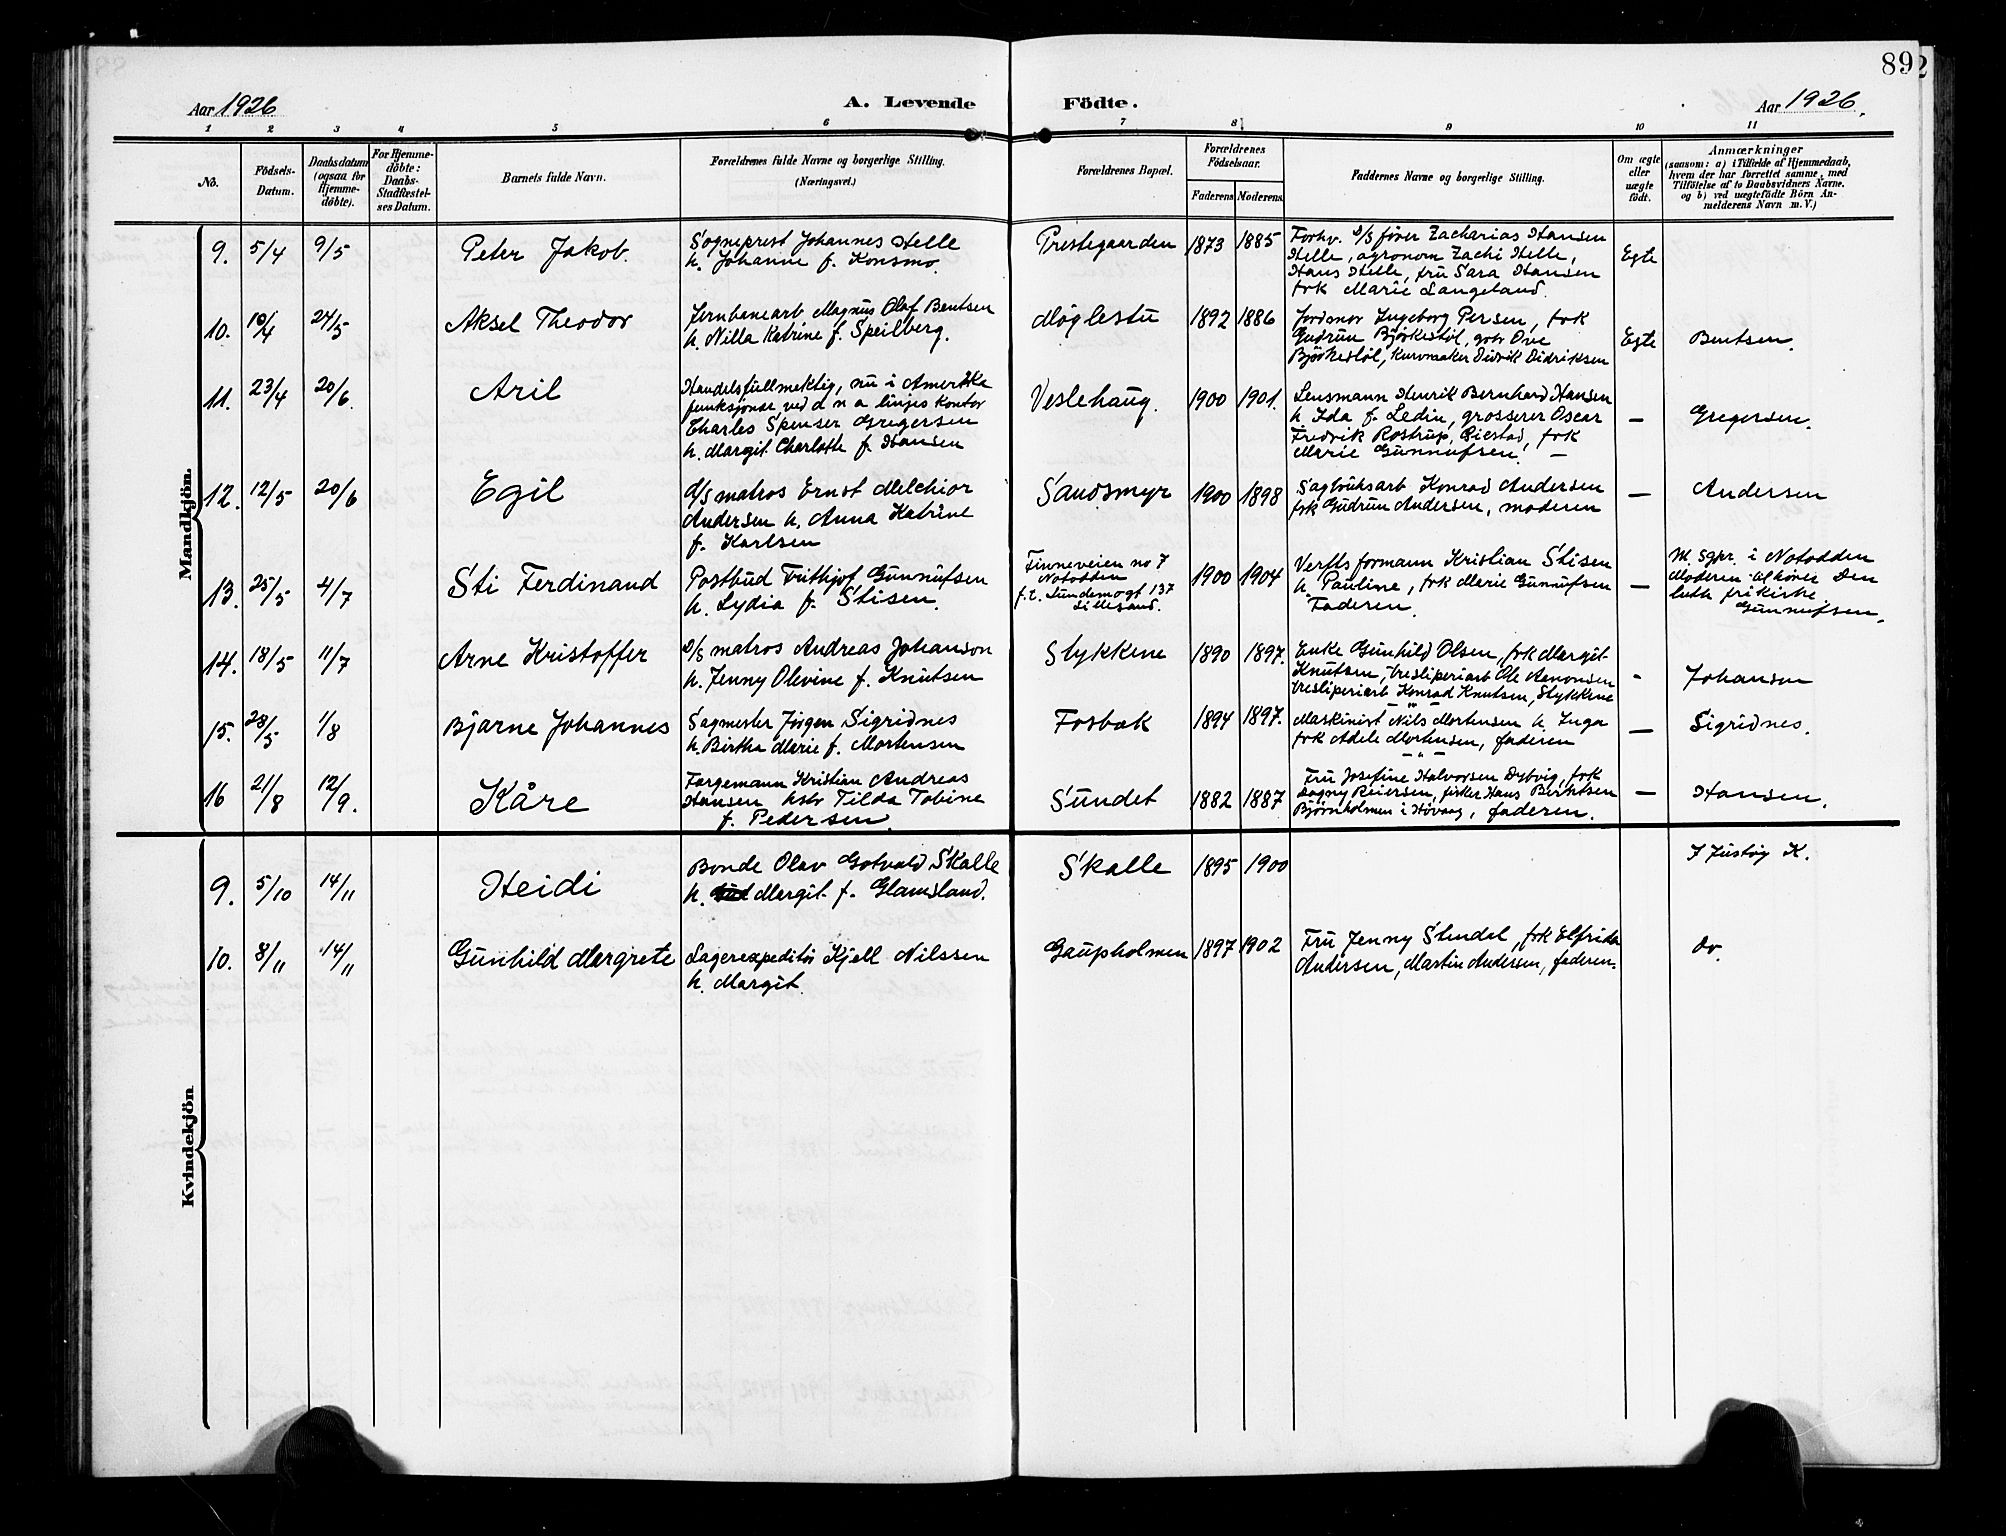 892
Aar 1926
A. Levende
Födte.
Aar 1926.
1 2 3 4 5 6 7 8 9 10 11
No.
Födsels-
Datum.
Daabsdatum
(ogsaa for
Hjemme-
döbte).
For Hjemme-
döbte:
Daabs-
Stadfæstel-
ses Datum.
Barnets fulde Navn.
Forældrenes fulde Navne og borgerlige Stilling.
(Næringsvei.)
Forældrenes Bopæl.
Forældrenes
Födselsaar.
Faderens Moderens
Faddernes Navne og borgerlige Stilling.
Om ægte
eller
uægte
födt.
Anmærkninger
(saasom: a) i Tilfælde af Hjemmedaab,
hvem der har forrettet samme, med
Tilföielse af to Daabsvidners Navne.
og b) ved uægtefödte Börn An-
melderens Navn m. V.)
Mandkjön.
9. 5/4 9/5 Peter Jakob.
Sogneprest Johannes Helle
h. Johanne f. Konsmo.
Prestegaarden 1873 1885
Forhv. D/S fører Zacharias Hansen
Helle, agronom Zachi Helle,
Hans Helle, fru Sara Hansen
frk Marie Langeland.
Egte
10. 10/4 24/5 Aksel Theodor
Jernbanearb Magnus Olaf Bentsen
h. Nilla Katrine f. Speilberg.
Møglestu 1892 1886
Jordmor Ingeborg Persen, frk
Gudrun Bjørkestøl, gbr Ove
Bjørkestøl, kurvmaker Didrik Didriksen
Egte
Bentsen.
11. 23/4 20/6 Aril
Handelsfullmektig, nu i Amerika
funksjonær ved d n a linjes kontor
Charles Spenser Gregersen
h. Margit Charlotte f. Hansen
Veslehaug. 1900 1901.
Lensmann Henrik Bernhard Hansen
h Ida f. Ledin, grosserer Oscar
Fredrik Rostrup, Eiestad, frk
Marie Gunnufsen. —
—
Gregersen.
12. 12/5 20/6 Egil
D/S matros Ernst Melchior
Andersen h. Anna Katrine
f. Karlsen
Sandsmyr 1900 1898
Sagbruksarb Konrad Andersen
frk Gudrun Andersen, moderen
—
Andersen
13. 25/5 4/7 Sti Ferdinand
Postbud Frithjof Gunnufsen
h. Lydia f. Stisen.
Tinneveien no 7
Notodden
f.t. Lundemogt 137
Lillesand.
1900 1904
Verftsformann Kristian Stisen
h. Pauline, frk Marie Gunnufsen
Faderen.
—
M. sgpr. i Notodden
Moderen tilhører Den
luth frikirke
Gunnufsen.
14. 18/5 11/7 Arne Kristoffer
D/S matros Andreas Johanson
h. Jenny Olevine f. Knutsen
Stykkene 1890 1897.
Enke Gunhild Olsen, frk Margit
Knutsen, tresliperiarb Ole Aanonsen
tresliperiarb Konrad Knutsen, Stykkene
-
Johansen
15. 28/5 1/8 Bjarne Johannes
Sagmester Jørgen Sigridnes
h. Birthe Marie f. Mortensen
Fosbæk 1894 1897.
Maskinist Nils Mortensen h. Inga
frk Adele Mortensen, faderen
—
Sigridnes.
16 21/8 12/9. Kåre
Færgemann Kristian Andreas
Hansen hstr Tilda Tobine
f. Pedersen.
Sundet 1882 1887
Fru Josefine Halvorsen Dybvig, frk
Dagny Reiersen, fisker Hans Berntsen
Bjørnholmen i Høvaag, faderen.
—
Hansen.
Kvindekjön
9. 5/10 14/11 Heidi
Bonde Olav Gotvald Skalle
h. Margit f. Glamsland.
Skalle 1895 1900
I Justøy K.
10. 8/11 14/11 Gunhild Margrete
Lagerexpeditør Kjell Nilssen
h. Margit.
Gaupholmen 1897 1902
Fru Jenny Stendal, frk Elfrida
Andersen, Martin Andersen, faderen.
do.